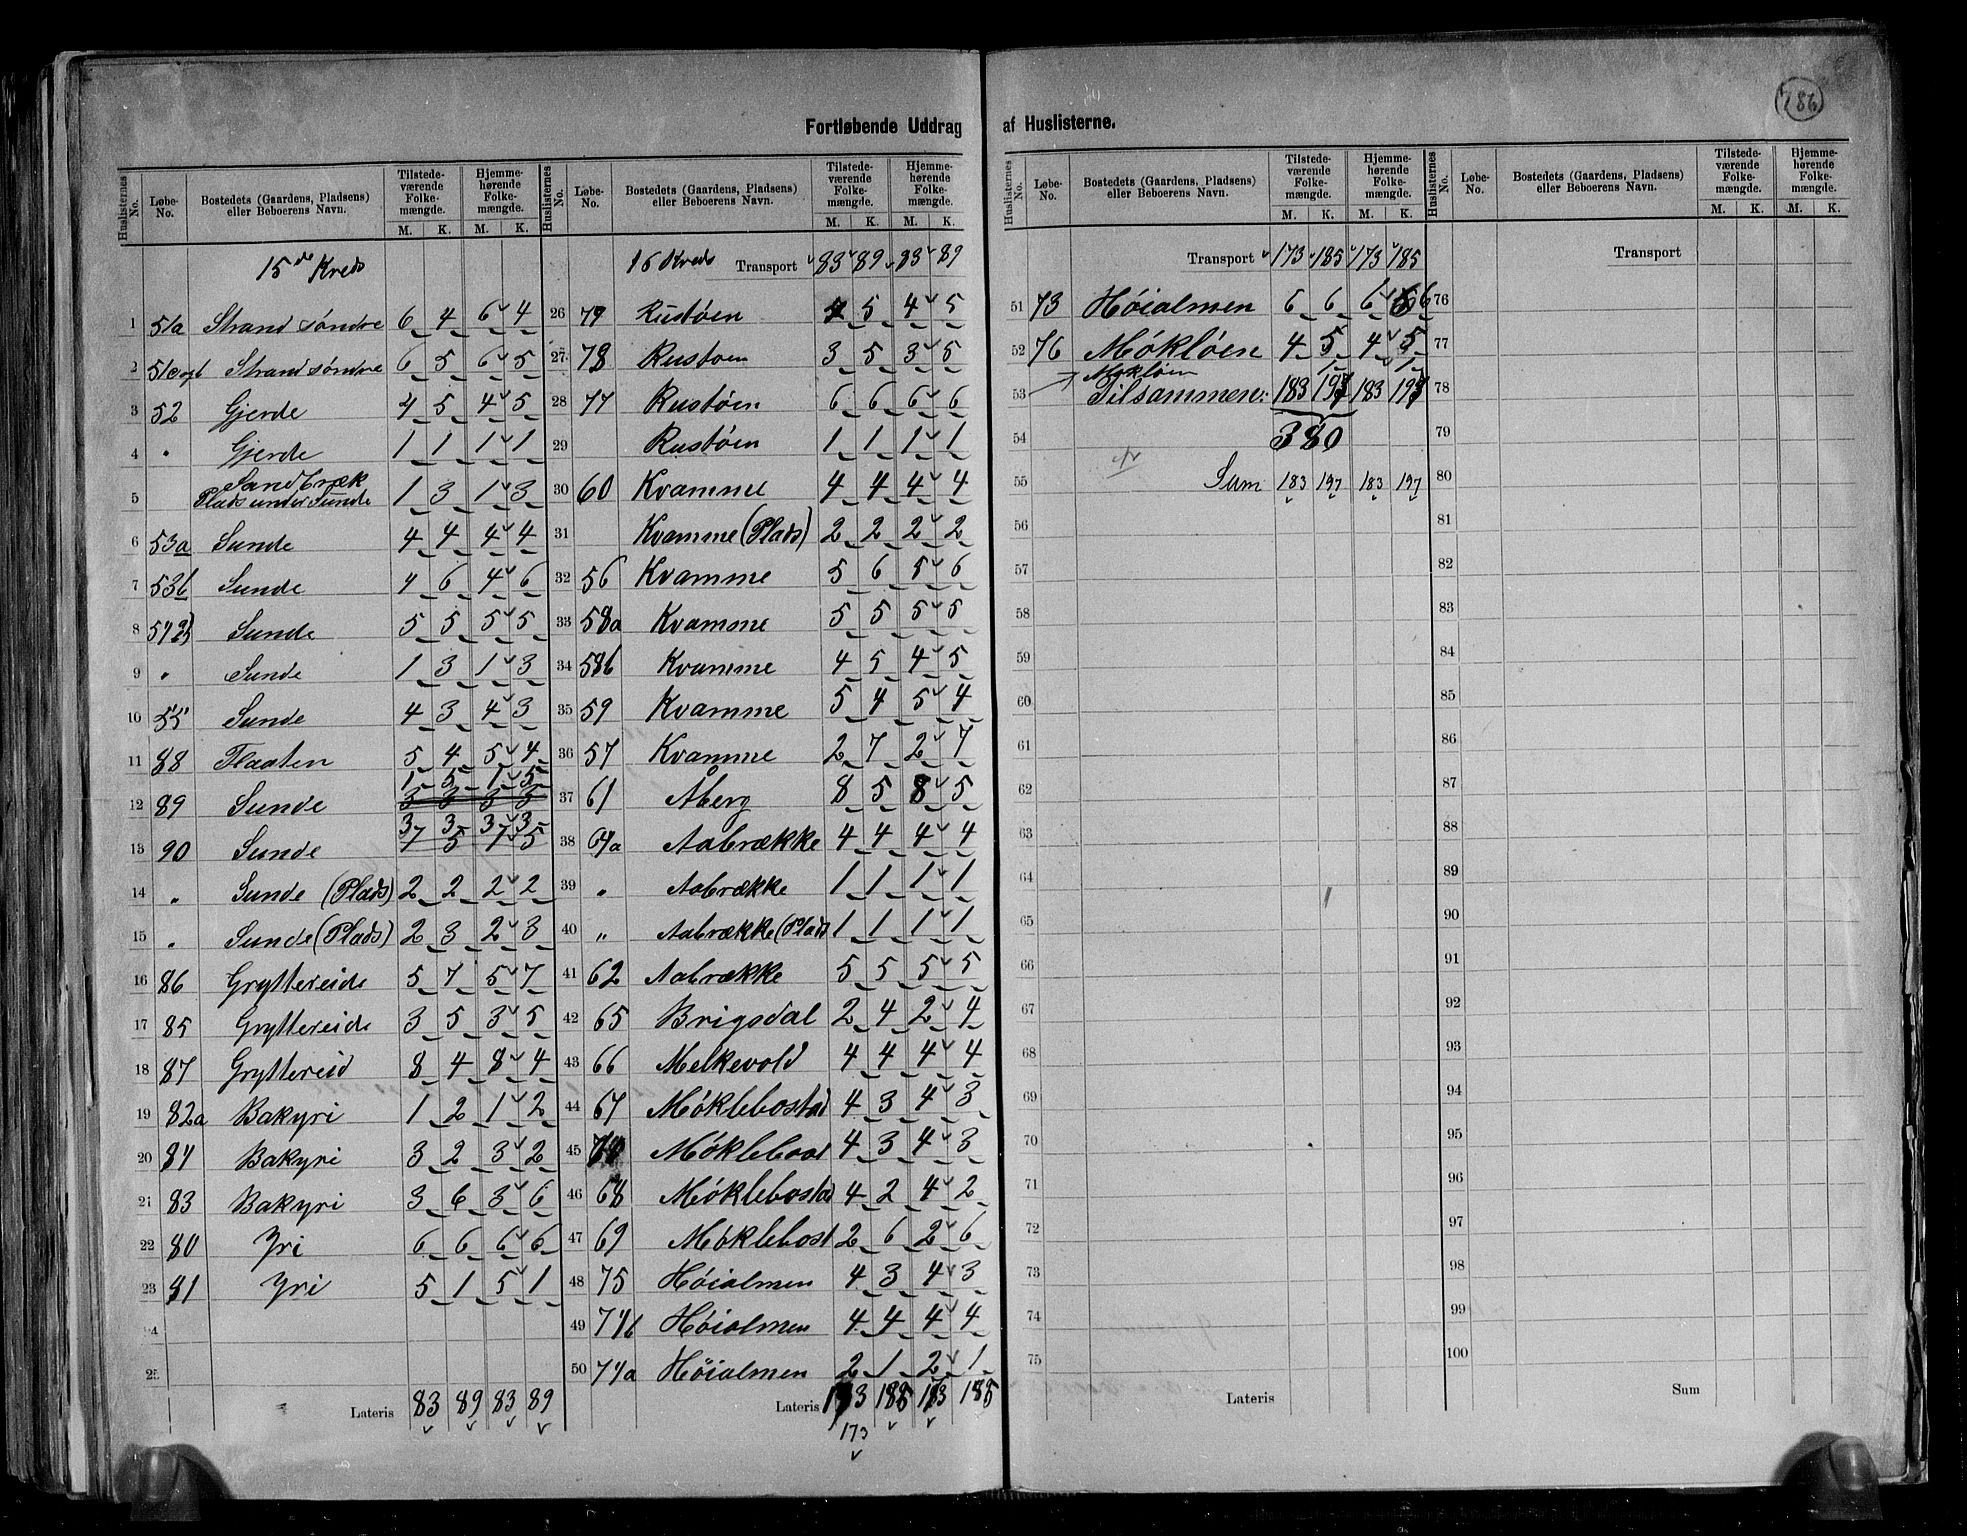 186
Fortløbende Uddrag af Huslisterne.
Huslisternes No. | Løbe-No. | Bostedets (Gaardens, Pladsens) eller Beboerens Navn. | Tilstedeværende Folkemængde. M. K. | Hjemmehørende Folkemængde. M. K.
15de Kreds
1 51a Strand søndre 6 4 6 4
2 Strand søndre 6 5 6 5
3 52 Gjerde 4 5 4 5
4 " Gjerde 1 1 1 1
5 Sandbræk Plads under Sunde 1 3 1 3
6 53a Sunde 4 4 4 4
7 53b Sunde 4 6 4 6
8 54 Sunde 5 5 5 5
9 " Sunde 1 3 1 3
10 55 Sunde 4 3 4 3
11 88 Flaaten 5 4 5 4
12 89 Sunde 1 5 1 5
3 3 3 3
13 90 Sunde 3 3 3 3
7 5 7 5
14 " Sunde (Plads) 2 2 2 2
15 " Sunde (Plads) 2 3 2 3
16 86 Gryttereide 5 7 5 7
17 85 Gryttereide 3 5 3 5
18 87 Gryttereid 8 4 8 4
19 82a Bakyri 1 2 1 2
20 84 Bakyri 3 2 3 2
21 83 Bakyri 3 6 3 6
22 80 Yri 6 6 6 6
23 81 Yri 5 1 5 1
24
25
Lateris 83 89 83 89
Huslisternes No. | Løbe-No. | Bostedets (Gaardens, Pladsens) eller Beboerens Navn. | Tilstedeværende Folkemængde. M. K. | Hjemmehørende Folkemængde. M. K.
16 Kreds Transport 83 89 83 89
26 79 Rustøen 4 5 4 5
27 78 Rustøen 3 5 3 5
28 77 Rustøen 6 6 6 6
29 Rustøen 1 1 1 1
30 60 Kvamme 4 4 4 4
31 Kvamme (Plads) 2 2 2 2
32 56 Kvamme 5 6 5 6
33 58a Kvamme 5 5 5 5
34 58b Kvamme 4 5 4 5
35 59 Kvamme 5 4 5 4
36 57 Kvamme 2 7 2 7
37 61 Åberg 8 5 8 5
38 64a Aabrække 4 4 4 4
39 " Aabrække 1 1 1 1
40 " Aabrække (Plads 1 1 1 1
41 62 Aabrække 5 5 5 5
42 65 Brigsdal 2 4 2 4
43 66 Melkevold 4 4 4 4
44 67 Møklebostad 4 3 4 3
45 Møklebost 4 3 4 3
46 68 Møklebostad 4 2 4 2
47 69 Møklebost 2 6 2 6
48 75 Høialmen 4 3 4 3
49 74b Høialmen 4 4 4 4
50 74a Høialmen 2 1 2 1
Lateris 173 185 173 185
173
Huslisternes No. | Løbe-No. | Bostedets (Gaardens, Pladsens) eller Beboerens Navn. | Tilstedeværende Folkemængde. M. K. | Hjemmehørende Folkemængde. M. K.
Transport 173 185 173 185
51 73 Høialmen 6 6 6 6
52 76 Møkløen 4 5 4 5
Møkløen 1 1
53 Tilsammen: 183 197 183 197
54 380
55 Sum 183 197 183 197
56
57
58
59
60
61
62
63
64
65
66
67
68
69
70
71
72
73
74
75
Lateris
Huslisternes No. | Løbe-No. | Bostedets (Gaardens, Pladsens) eller Beboerens Navn. | Tilstedeværende Folkemængde. M. K. | Hjemmehørende Folkemængde. M. K.
Transport
76
77
78
79
80
81
82
83
84
85
86
87
88
89
90
91
92
93
94
95
96
97
98
99
100
Sum